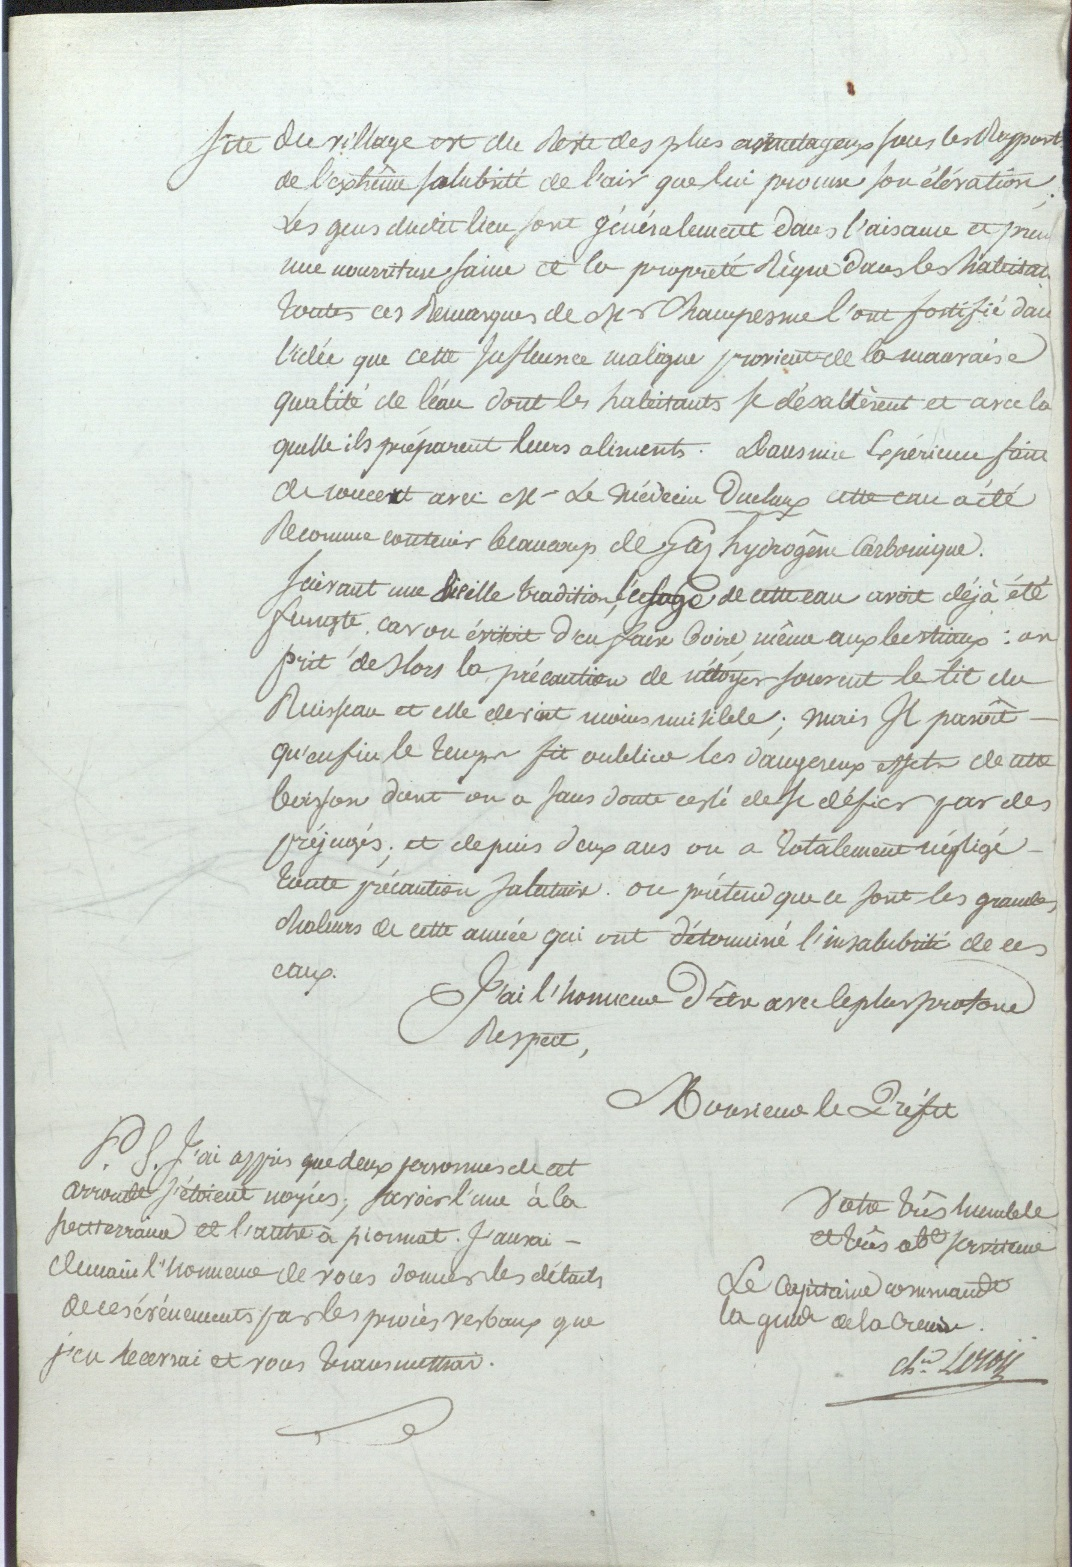 site du village est du Reste des plus avantageux sous les Rapport
de l'extrême salubrité de l'air que lui procure son élévation;
Les gens dudit lieu sont généralement dans l'aisance et pren
une nourriture saine et la propreté Règne dans les habitat
toutes ces Remarques de Mr Champesme l'ont fortifié dan
l'idée que cette Influence maligne provient de la mauvaise
qualité de l'eau dont les habitants se désaltèrent et avec la
quelle ils préparent leurs aliments. Dans une Expérience faite
de concert avec Mr Le Médecin Duclaux cette eau a été
Reconnue contenir beaucoup de Gaz hydrogêne Carbonique.
Suivant une vieille tradition, l'usage de cette eau avoit déjà été
funeste, car on évitoit d'en faire boire même aux bestiaux : on
prit dèslors la précaution de nétoyer souvent le lit du
Ruisseau et elle devint moins nuisible; mais Il paroît –
qu'enfin le temps fit oublier les dangereux effets de cette
boisson dont on a sans doute cessé de se défier par des
préjugés; et depuis deux ans on a totalement négligé –
toute précaution salutaire. on prétend que ce sont les grandes
chaleurs de cette année qui ont déterminé l'insalubrité de ces
eaux.
J'ai l'honneur d'Etre avec le plus profond
Respect,
Monsieur le Préfet
P. S. J'ai appris que deux personnes de cet
arrondt s'étoient noyées, savoir l'une à la
et l'autre à pionnat. J'aurai –
demain l'honneur de vous donner les détails
de ces événements par les procès verbaux que
j'en recevrai et vous transmettrai.
Votre très humble
et très obt serviteur
Le Capitaine commandt
la gendie de la Creuse.
chr Leroy